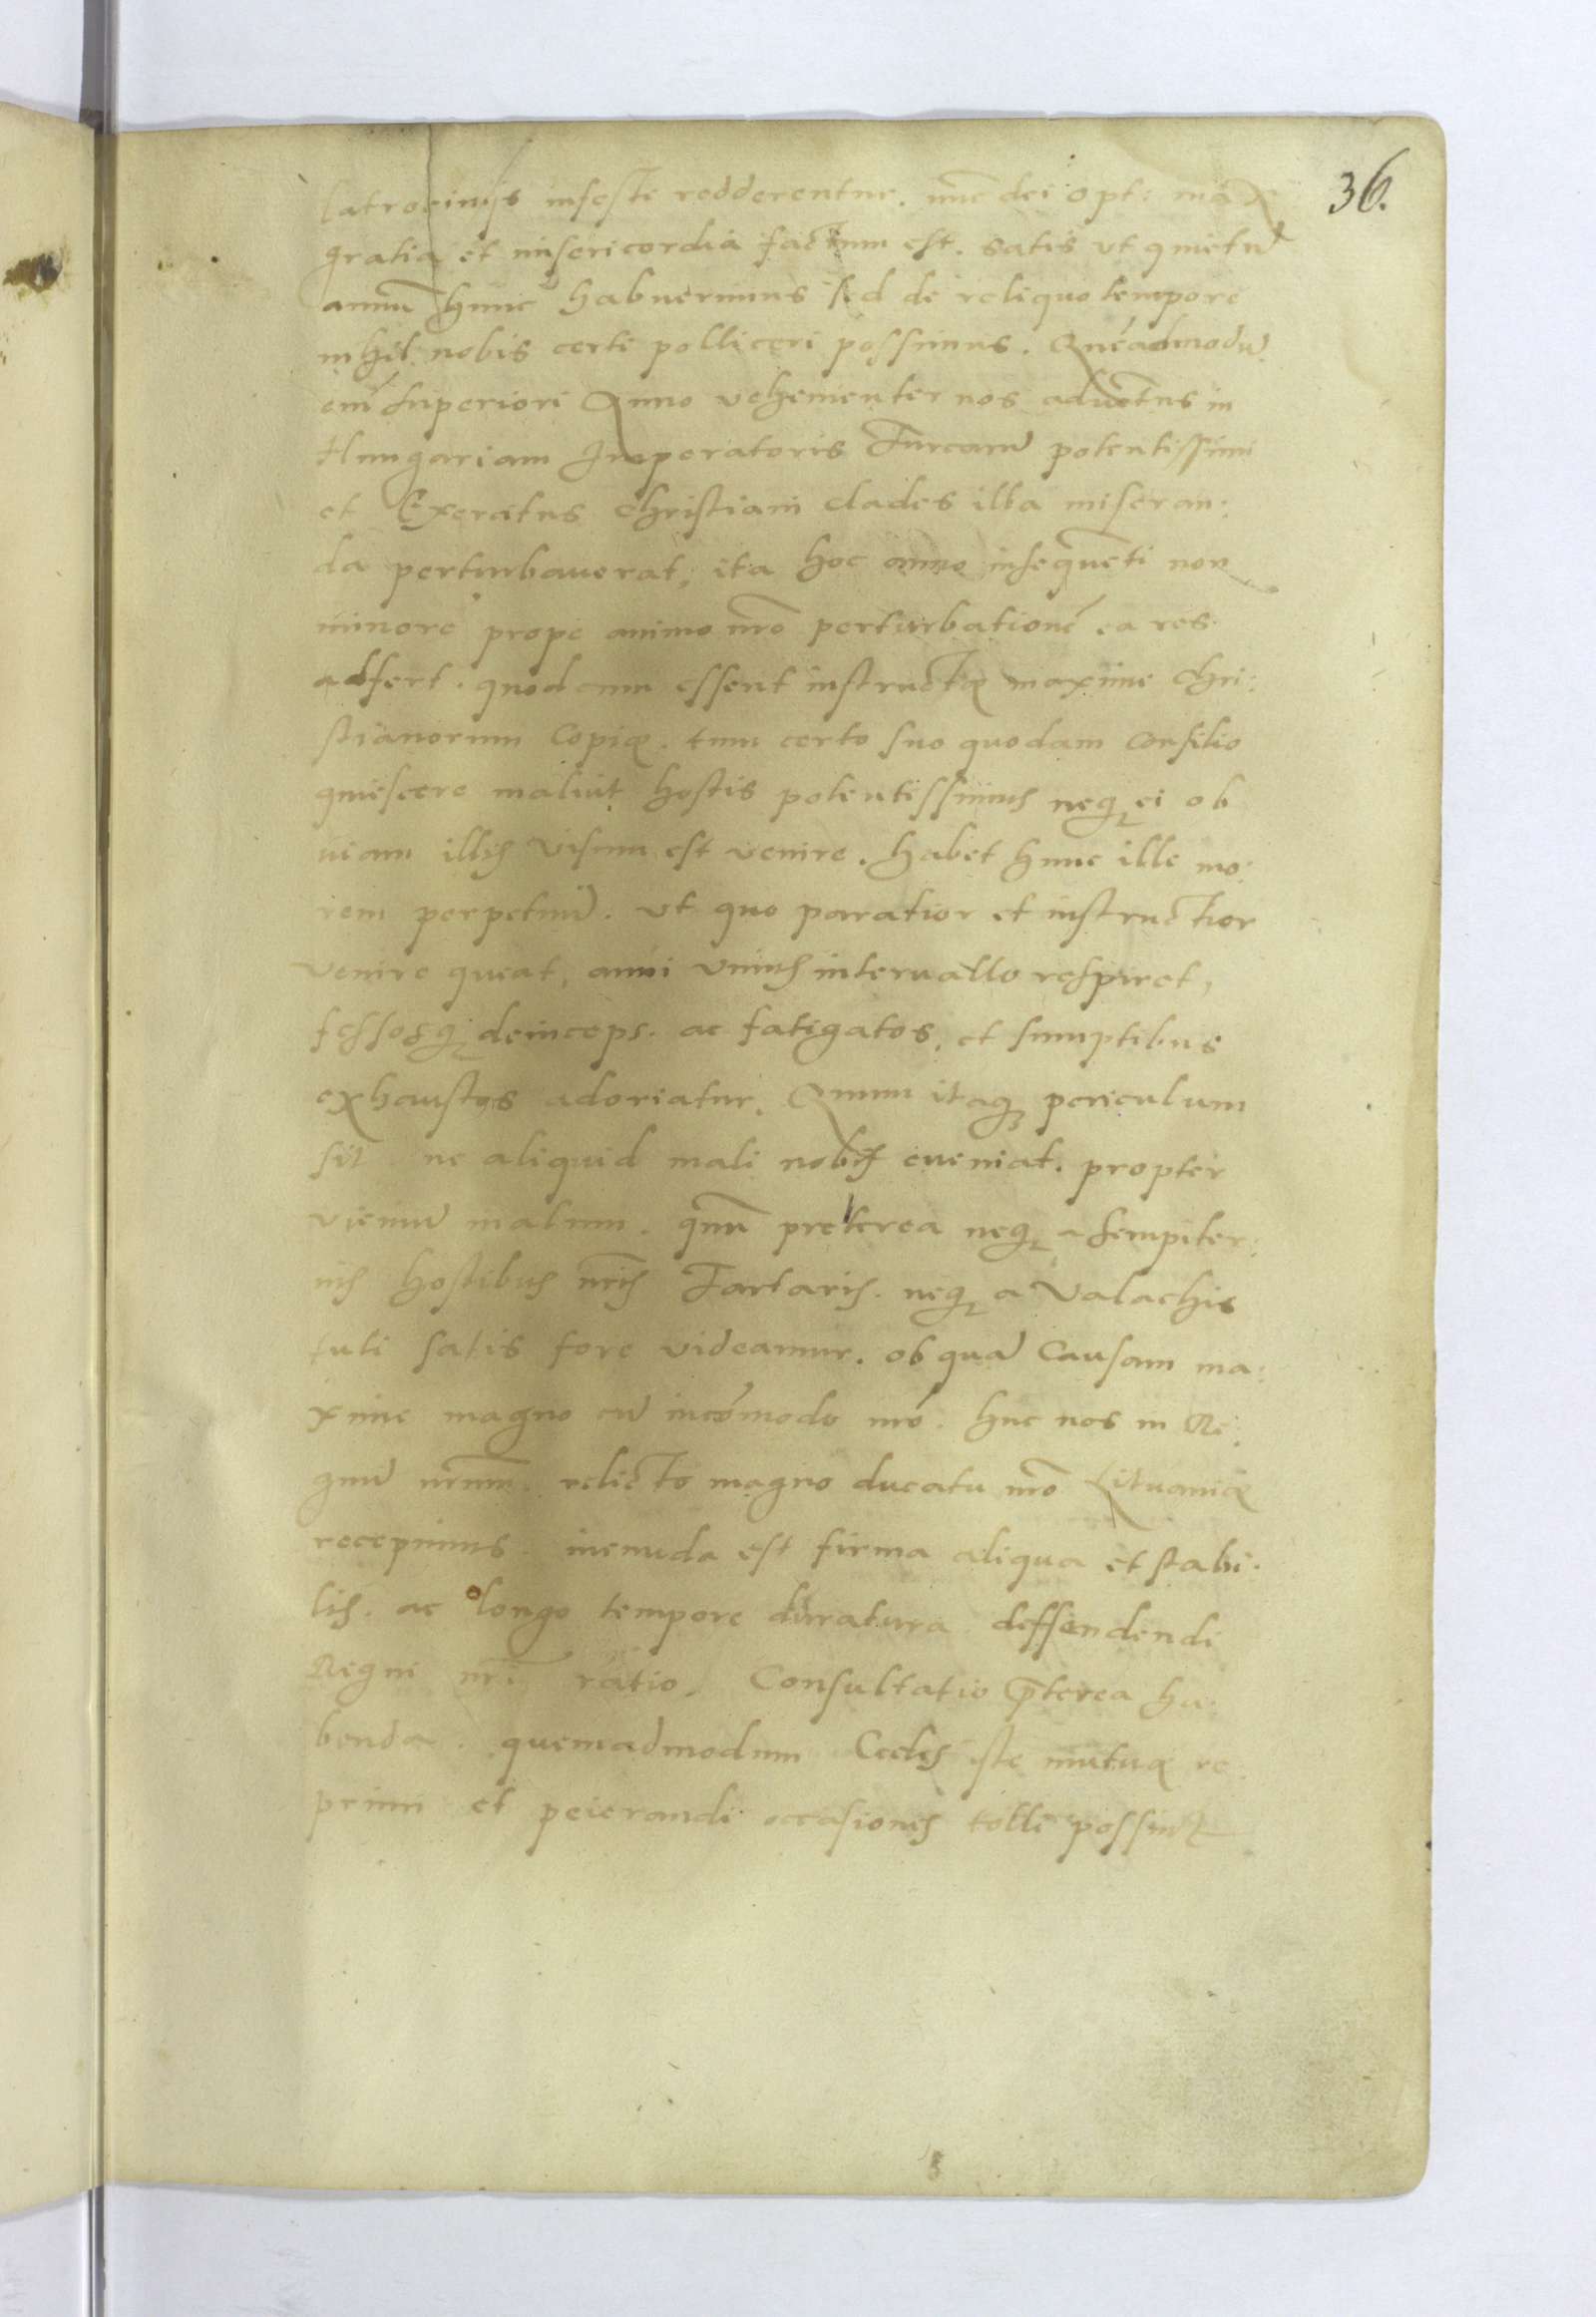 36.
latrocinijs infesti redderentur. nūc dei opt: max
gratia et misericordia factum est. satis vt quietū
annū hunc habuerimus sed de reliquo tempore
nihil nobis certi polliceri possimus. Quēadmodū
em̄ superiori Anno vehementer nos aduētus in
Hungariam Imperatoris Turcarū potentissimi
et Exercitus christiani clades illa miseran:
da perturbauerat, ita hoc anno insequēti non
minorē prope animo n̄ro perturbationē ea res
adfert. quod cum essent instructæ maxime chri:
stianorum Copiæ. tum certo suo quodam consilio
quiescere maluit hostis potentissimus neq; ei ob
uiam illis visum est venire. habet hunc ille mo:
rem perpetuū. vt quo paratior et instructior
venire queat, anni vnius interuallo respiret,
fessosq; deinceps. ac fatigatos, et sumptibus
exhaustos adoriatur. Quum itaq; periculum
sit ne aliquid mali nobis eueniat. propter
vicinū malum. quū preterea neq; a sempiter:
nis hostibus n̄ris Tartaris. neq; a Valachis
tuti satis fore videamur. ob quā Causam ma:
xime magno cū incōmodo n̄ro. huc nos in Re:
gnū n̄rum relicto magno ducatu n̄ro Lituaniæ
recepimus. ineunda est firma aliqua et stabi:
lis. ac longo tempore duratura deffendendi
Regni n̄ri ratio. Consultatio p̄terea ha:
benda. quemadmodum Cedes iste mutuæ re
primi et peierandi occasiones tolli possint